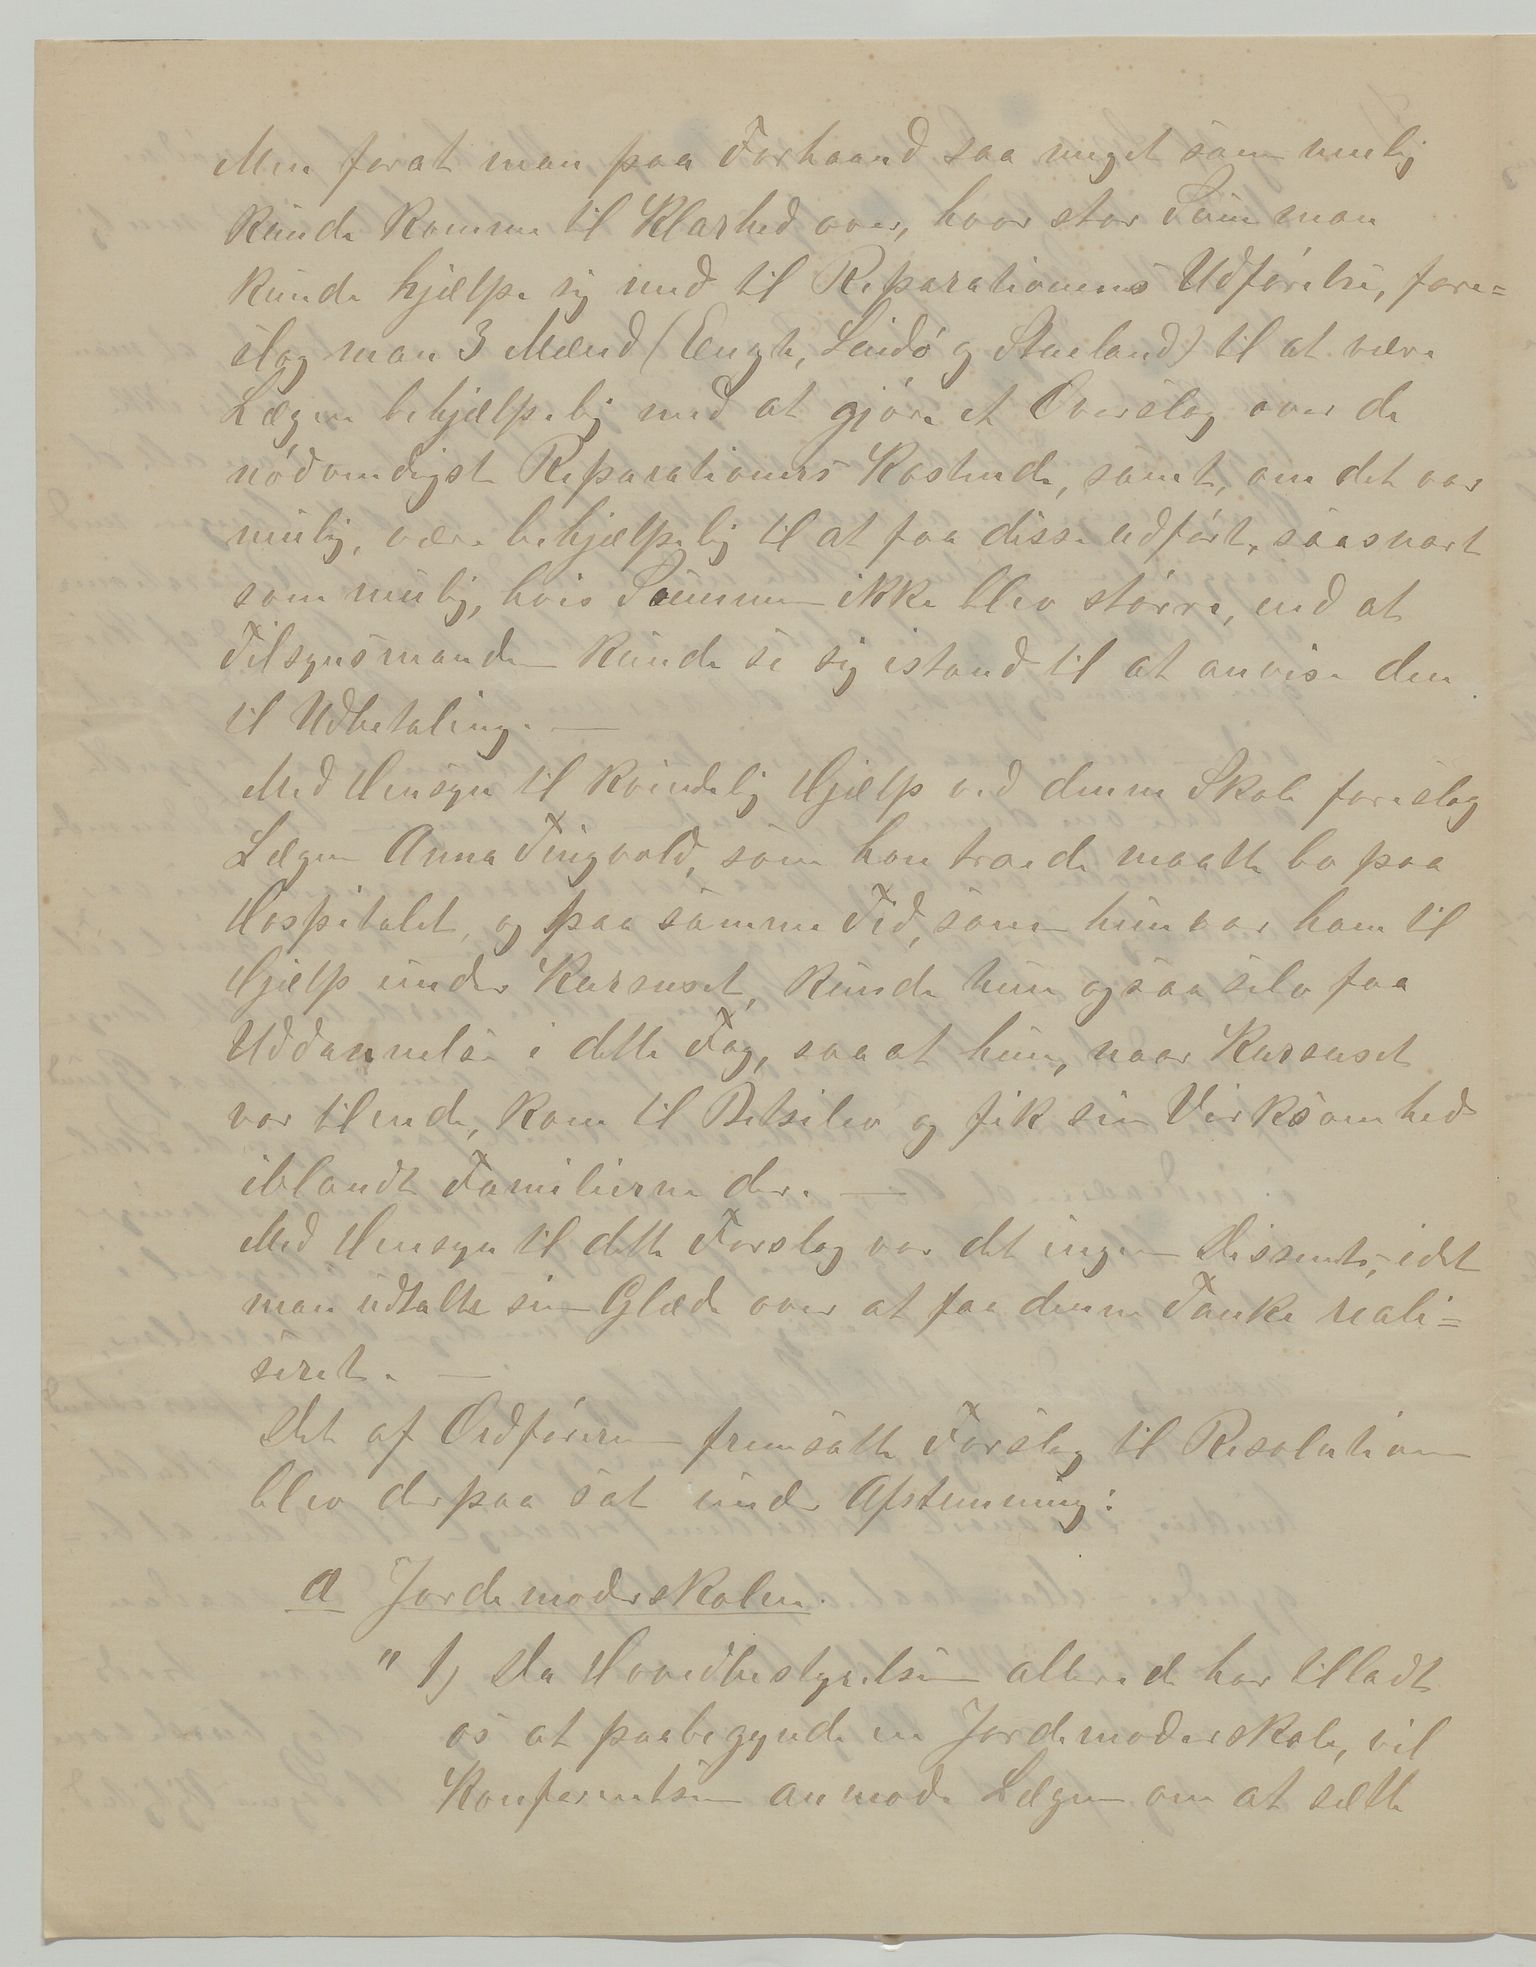 Men forat man paa Forhaand saa meget som mulig
kunde komme til Klarhed over, hvor stor Sum man
kunde hjælpe sig med til Reparationens Udførelse, fore=
slog man 3 Mænd (Engh, Lindø og Stueland) til at være
Lægen behjælpelig med at gjøre et Overslag over de
nødvendigste Reparationers Kostende, samt, om det var
mulig, være behjælpelig til at faa disse udført, saasnart
som mulig, hvis Summen ikke blev større, end at
Tilsynsmanden kunde se sig istand til at anvise den
til Udbetaling. —
Med Hensyn til kvindelig Hjælp ved denne Skole foreslog
Lægen Anna Tingvold, som han troede maatte bo paa
Hospitalet, og paa samme Tid, som hun var ham til
Hjælp under Kursuset, kunde hun ogsaa selv faa
Uddannelse i dette Fag, saa at hun, naar Kursuset
var tilende, kom til Betsileo og fik sin Virksomhed
iblandt Familierne der. —
Med Hensyn til dette Forslag var det ingen Dissents, idet
man udtalte sin Glæde over at faa denne Tanke reali=
seret. —
Det af Ordføreren fremsatte Forslag til Resolution
blev derpaa sat under Afstemning:
a Jordemoderskolen.
" 1) Da Hovedbestyrelsen allerede har tilladt
os at paabegynde en Jordemoderskole, vil
Konferentsen anmode Lægen om at sætte